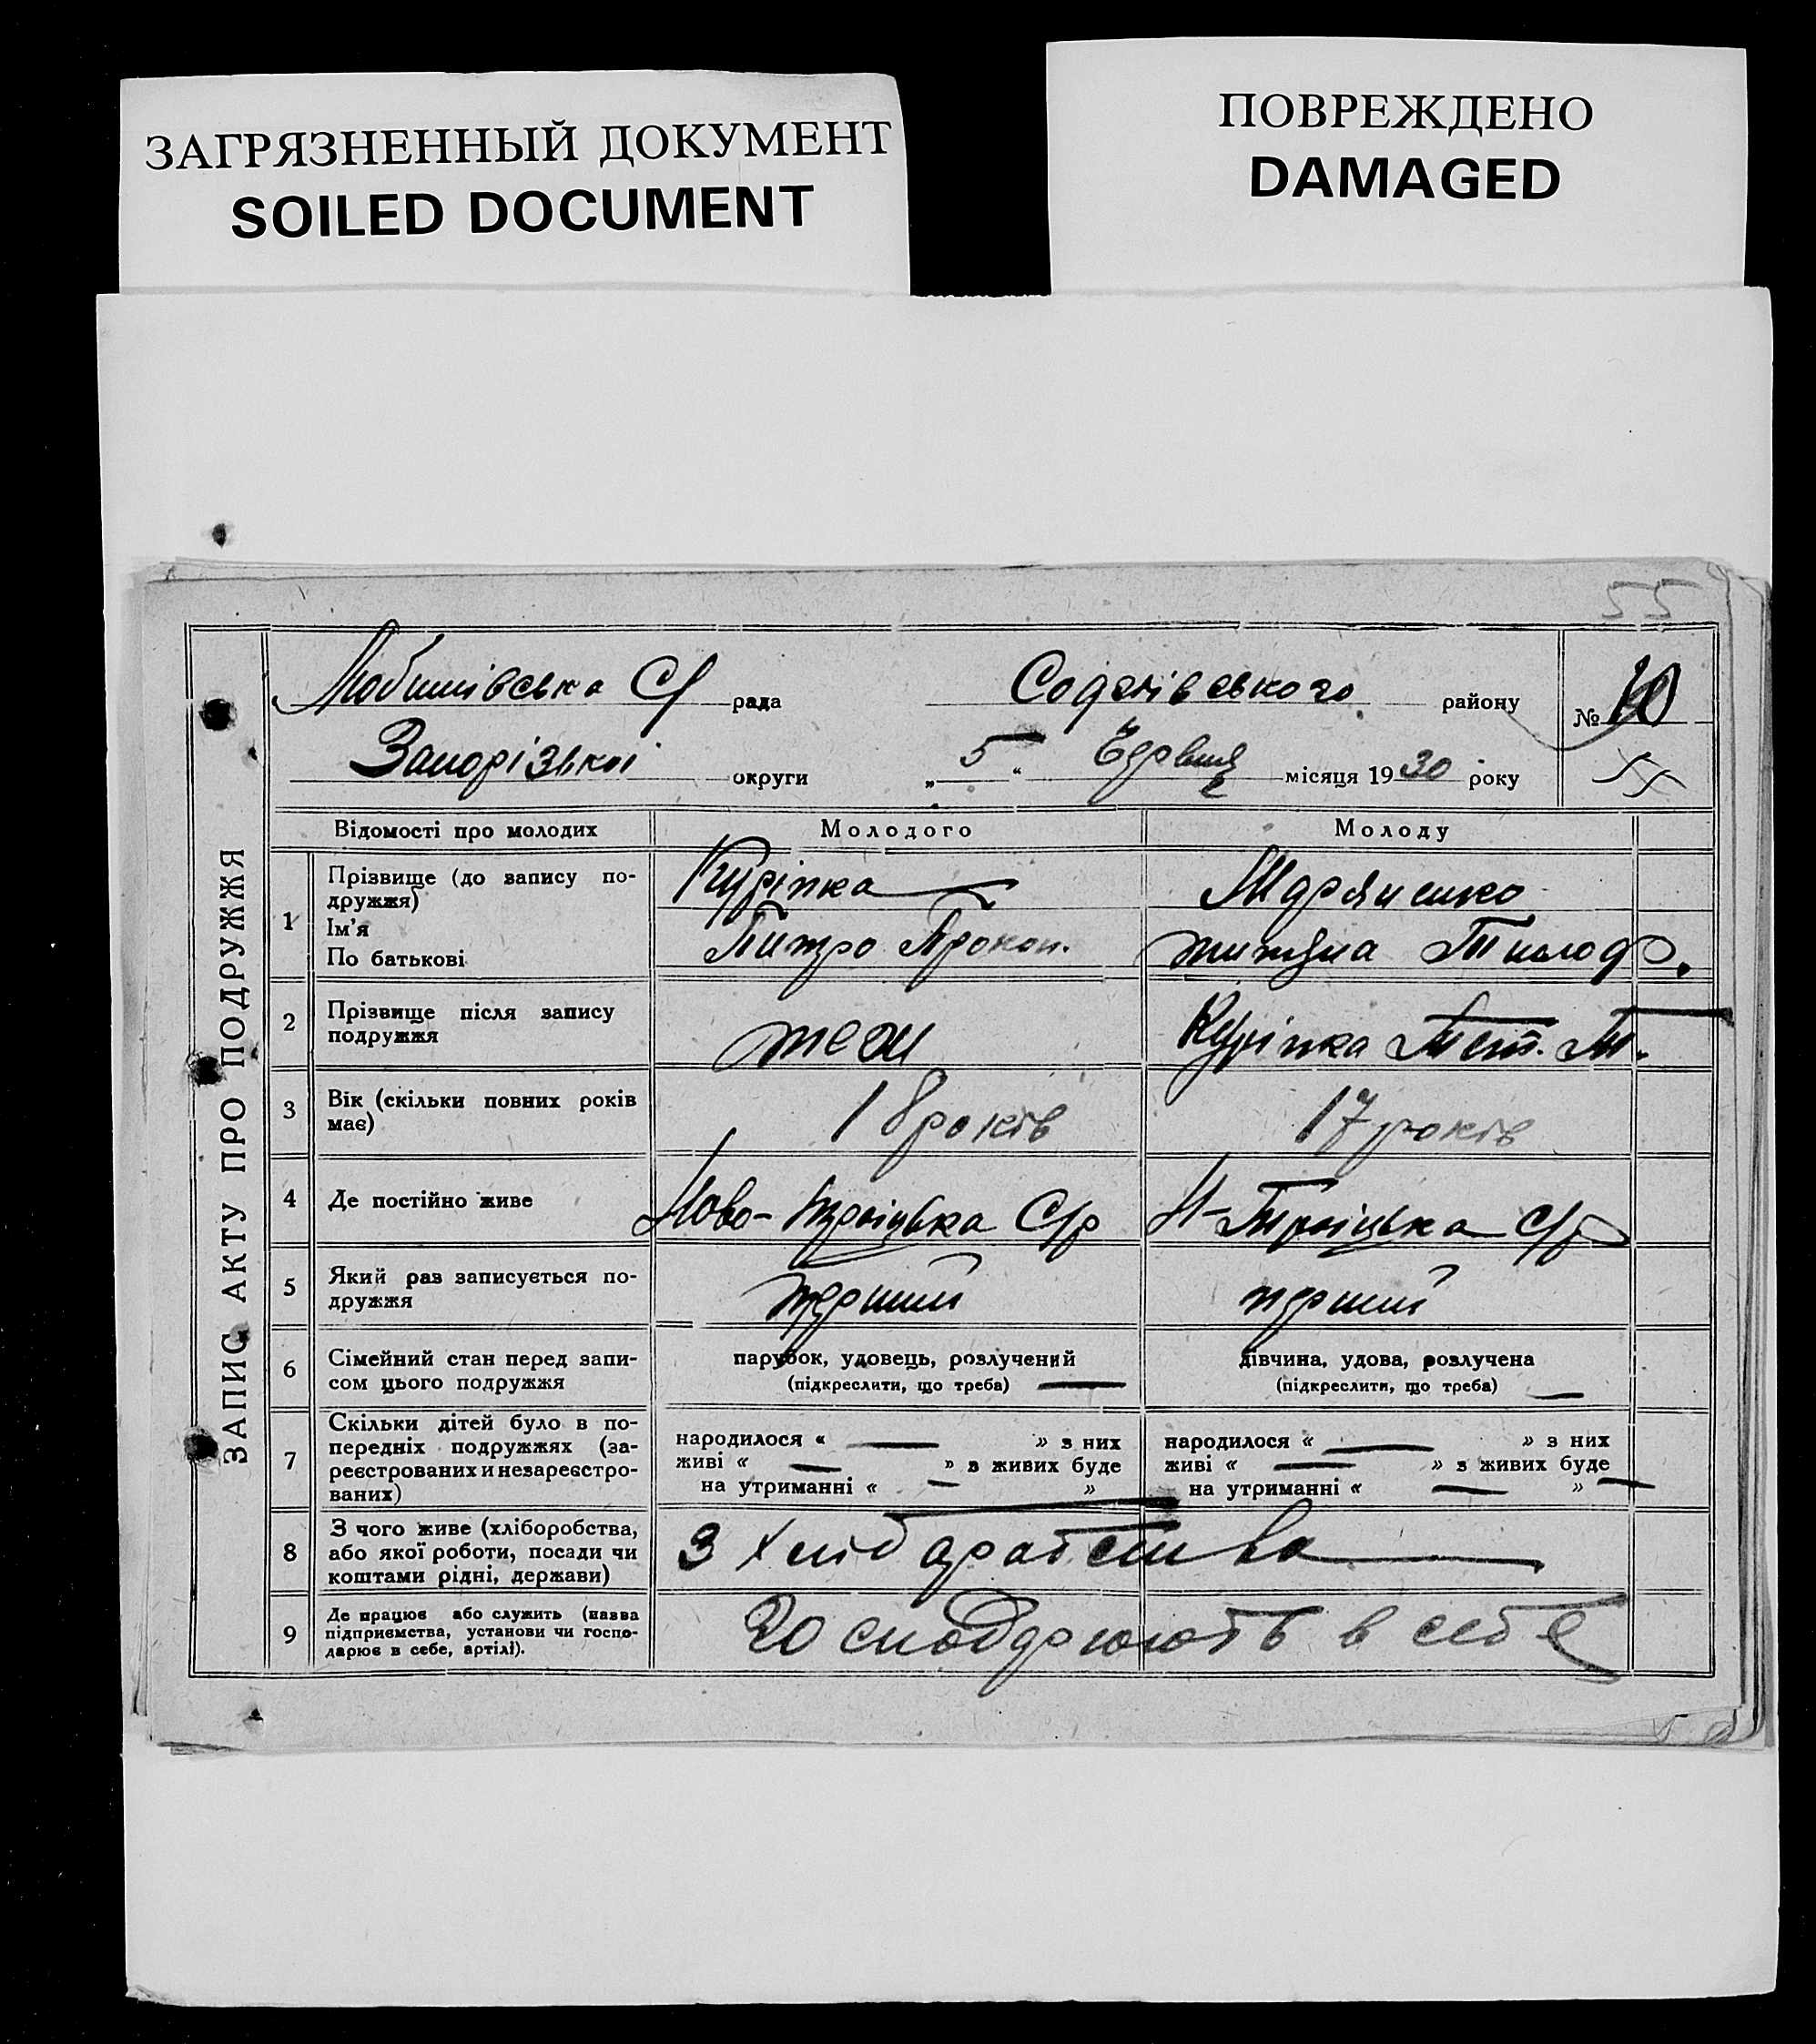 ЗАГРЯЗНЕННЫЙ ДОКУМЕНТ
SOILED DOCUMENT
ПОВРЕЖДЕНО
DAMAGED
55
ЗАПИС АКТУ ПРО ПОДРУЖЖЯ
Любимівська С/ рада району № 10
Запорізької округи „5“ Червня місяця 1930 року
Відомості про молодих Молодого Молоду
1 Прізвище (до запису по-
дружжя)
Ім'я
По батькові
Куріпка
Питро Прокоп.
2 Прізвище після запису
подружжя
теж Куріпка Тет. Т.
3 Вік (скільки повних років
має)
18 років 17 років
4 Де постійно живе Ново-Троіцька С/р Н-Троіцька С/р
5 Який раз записується по-
дружжя
перший перший
6 Сімейний стан перед запи-
сом цього подружжя
парубок, удовець, розлучений
(підкреслити, що треба) —
дівчина, удова, розлучена
(підкреслити, що треба) —
7 Скільки дітей було в по-
передніх подружжях (за-
реєстрованих и незареєстро-
ваних)
народилося « — » з них
живі « — » з живих буде
на утриманні « — »
народилося « — » з них
живі « — » з живих буде
на утриманні « — » —
8 З чого живе (хліборобства,
або якої роботи, посади чи
коштами рідні, держави)
З хлібаробства
9 Де працює або служить (назва
підприємства, установи чи госпо-
дарює в себе, артілі).
господарюють в себе